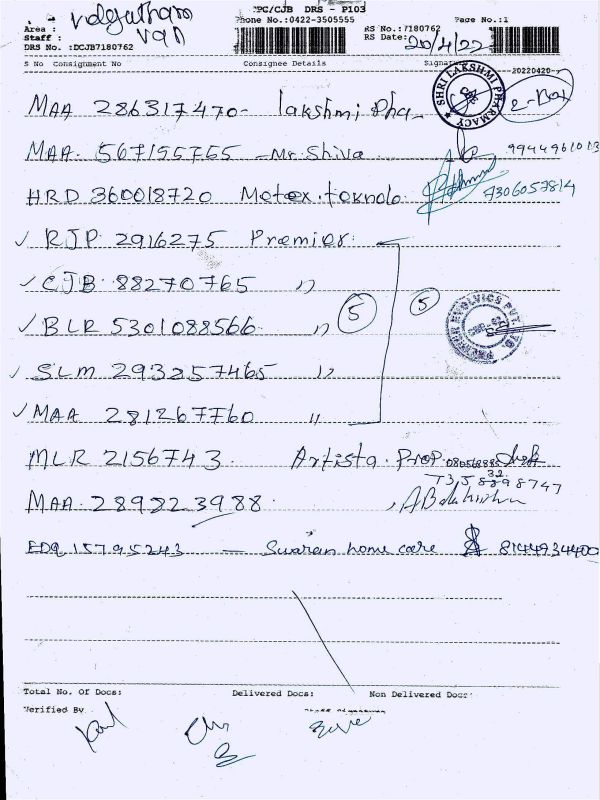 PC/CJB DRS - P103
Area :
Staff : Van
Phone No.:0422-3505555
RS No.:7180762
Page No.:1
DRS No. :DCJB7180762
RS Date: 20/4/22
S No Consignment No Consignee Details Signature
20220420
MAA 286317470- lakshmi Pha
SHRI LAKSHMI PHARMACY
2-Box
MAA. 567155765 - Mr. Shiva
HRD 360018720 Motex. teknolo
7306057814
✓ RJP 2916275 Premier.
✓ CJB 88270765 "
5
5
✓ BLR 5301088566 "
PREMIER EVOLVICS PVT. LTD
✓ SLM 293257465 "
✓ MAA 281267760 "
MLR 2156743. Artista. Prop.
MAA. 289223988
EDQ 15795243 - Swaran home care
Total No. Of Docs: Delivered Docs: Non Delivered Docs:
Verified By